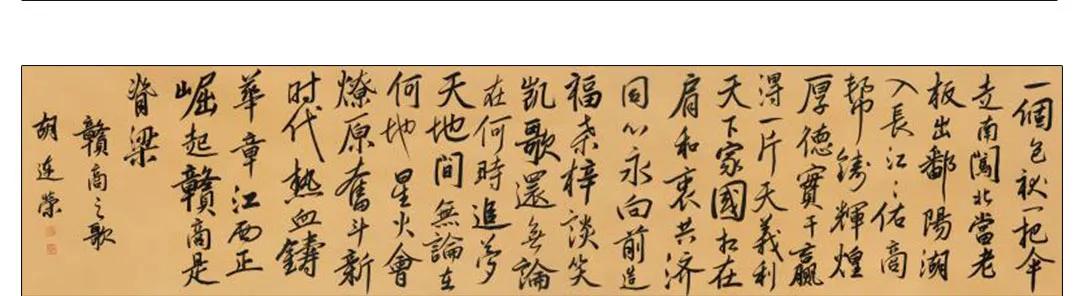 一個包袱一把伞
走南闖北當老
板出鄱陽湖
入長江〻佑商
幫鑄輝煌
厚德實干贏
得一片天義利
天下家國扛在
肩和衷共济
同心永向前造
福桑梓談笑
凱歌還无論
在何時追夢
天地間無論在
何地星火會
燎原奮斗新
时代熱血鑄
華章江西正
崛起贛商是
脊梁
贛商之歌
胡连榮